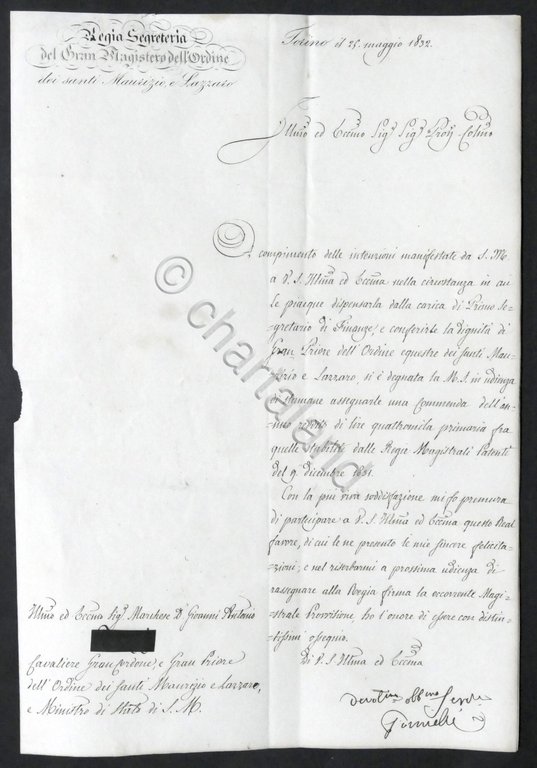 Regia Segreteria
del Gran Magistero dell'Ordine
dei santi Maurizio, e Lazzaro
Torino il 25. maggio 1832.
Illmo ed Eccmo Sigr Sigr Proñ Colmo
A compimento delle intenzioni manifestate da S. M.
a V. S. Illma ed Eccma nella circostanza in cu
le piacque dispensarla dalla carica di Primo Se-
=gretario di Finanze, e conferirle la dignità di
Gran Priore dell'Ordine equestre dei santi Mau-
=rizio e Lazzaro, si è degnata la M. S. in udienza
di stamane assegnarle una Commenda dell'an-
=nuo reddito di lire quattromila primaria fra
quelle stabilite dalle Regie Magistrali Patenti
del 9. dicembre 1831.
Con la più viva soddisfazione mi fo premura
di partecipare a V. S. Illma ed Eccma questo Real
favore, di cui le ne presento le mie sincere felicita-
=zioni, e nel riserbarmi a prossima udienza di
rassegnare alla Regia firma la occorrente Magi-
=strale Provvisione, ho l'onore di essere con distin-
=tissimi ossequio.
Di V. S. Illma ed Eccma
devotmo obbmo Servre
Illmo ed Eccmo Sigr Marchese D. Giovanni Antonio
Cavaliere Gran Cordone, e Gran Priore
dell'Ordine dei santi Maurizio e Lazzaro,
e Ministro di Stato di S. M.
© chartaland